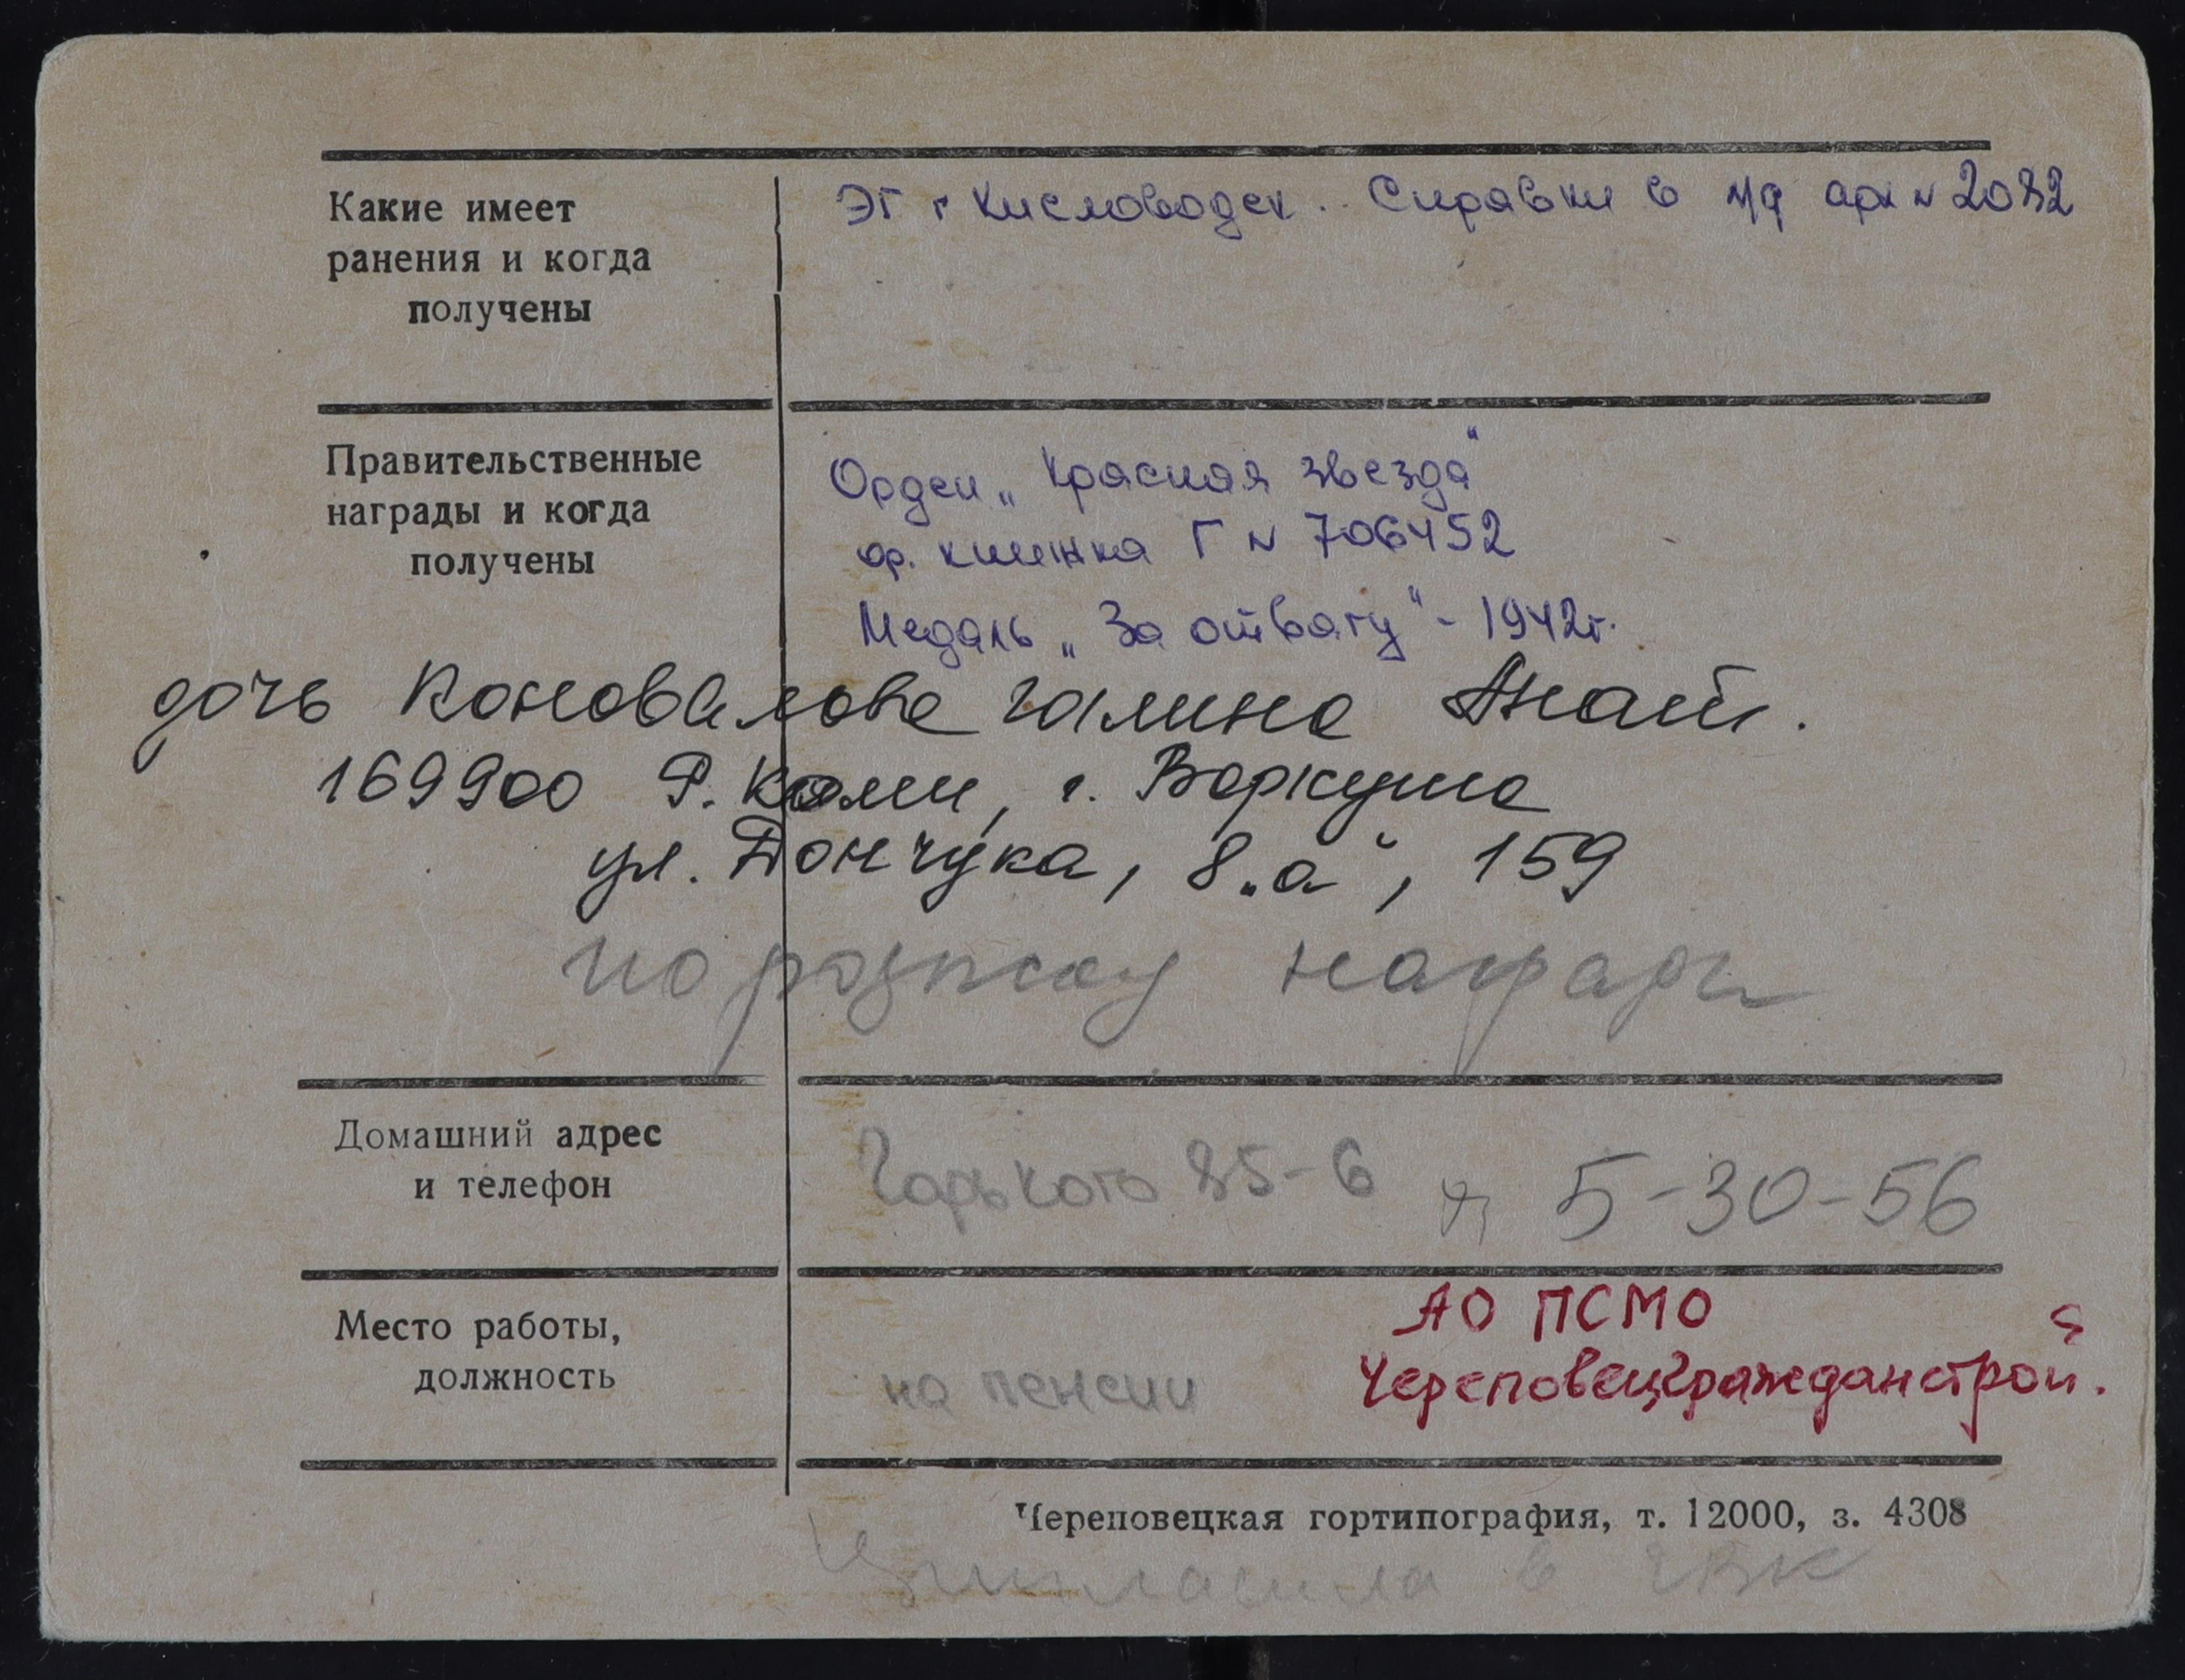 Какие имеет
ранения и когда
получены
ЭГ г Кисловодск. Справки в м/ф арх № 2082
Правительственные
награды и когда
получены
Орден „Красная звезда"
ор. книжка Г № 706452
Медаль „За отвагу" - 1942г.
дочь Коновалова Галина Анат.
169900 Р. Коми, г. Воркута
ул. Дончука, 8„а", 159
по розыску награды
Домашний адрес
и телефон
Горького 85-6 5-30-56
Место работы,
должность
на пенсии
АО ПСМО
Череповецгражданстрой.
Череповецкая гортипография, т. 12000, з. 4308
в ГВК